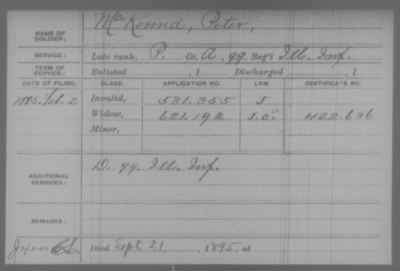 NAME OF SOLDIER: McKenna, Peter,
SERVICE: Late rank, P. Co. A, 99 Reg't Ill. Inf.
TERM OF SERVICE: Enlisted , 1 Discharged , 1
DATE OF FILING. CLASS. APPLICATION NO. LAW. CERTIFICATE NO.
Feb. 2 Invalid, 531.355 J
Widow, 621.192 422.636
Minor,
ADDITIONAL SERVICES: D. 99. Ill. Inf.
REMARKS:
Died Sept 21, 1895, at